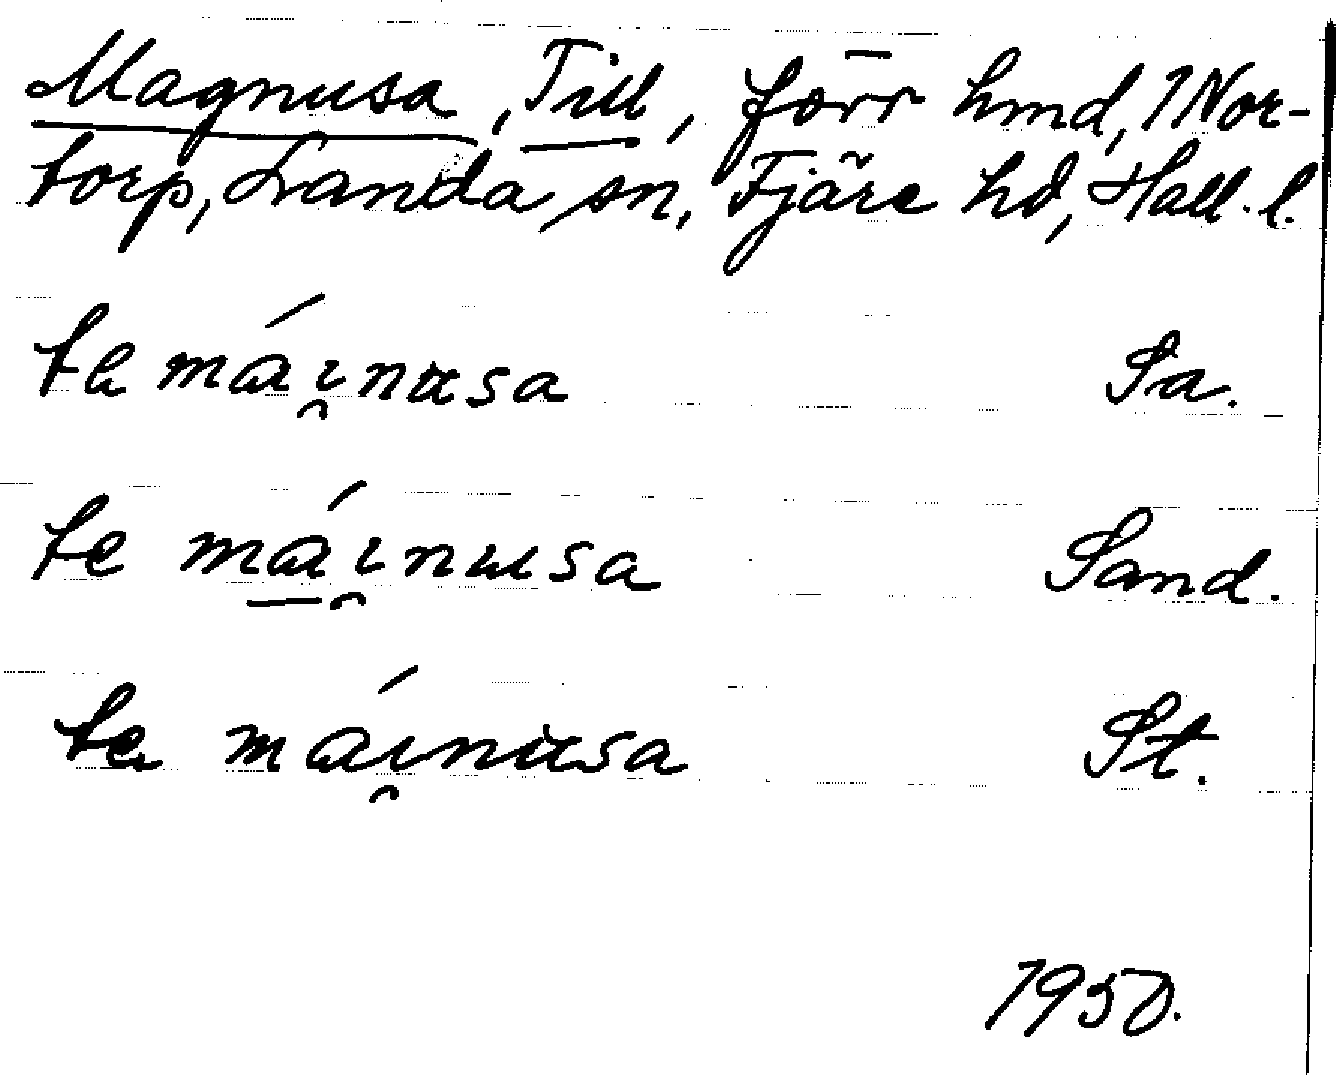 Magnusa, Till, förr hmd, 1 Nor-
torp, Landa sn, Fjäre hd, Hall. l.
te má i̯nusa Sa.
te má i̯nusa Sand.
te mái̯nusa St.
1950.